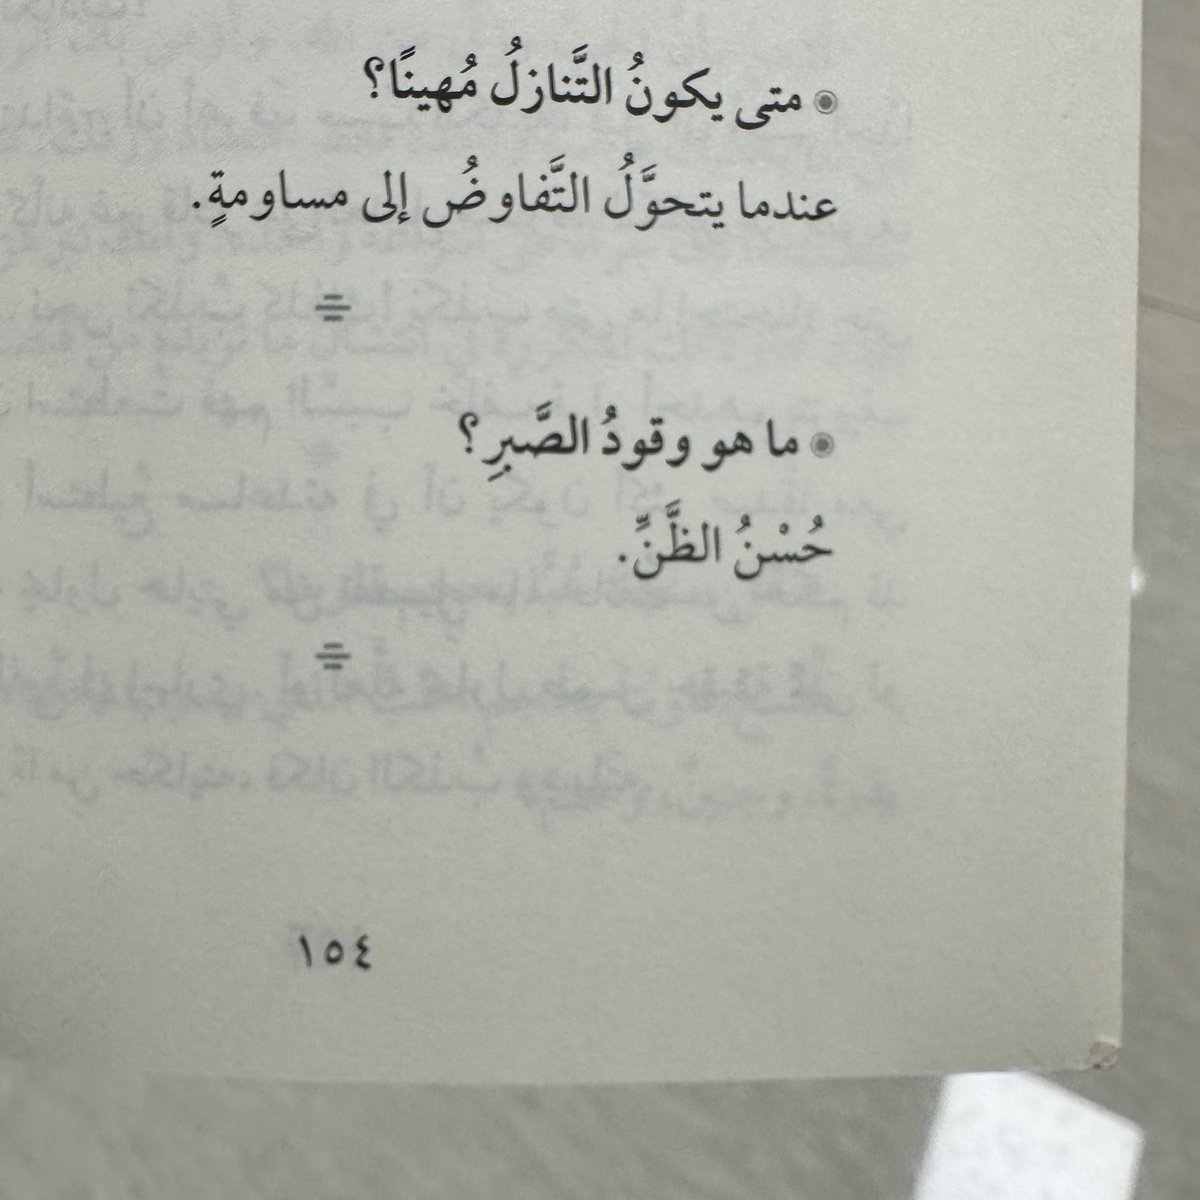 متى يكونُ التَّنازلُ مُهينًا؟
عندما يتحوَّلُ التَّفاوضُ إلى مساومةٍ.
ما هو وقودُ الصَّبرِ؟
حُسْنُ الظَّنِّ.
١٥٤